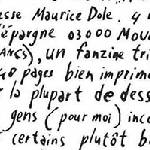 esse Maurice Dole. 4
'épargne 03000 MOU
ANCS), un fanzine tri
40 pages bien imprimé
r la plupart de dess
gens (pour moi) inc
certains plutôt b